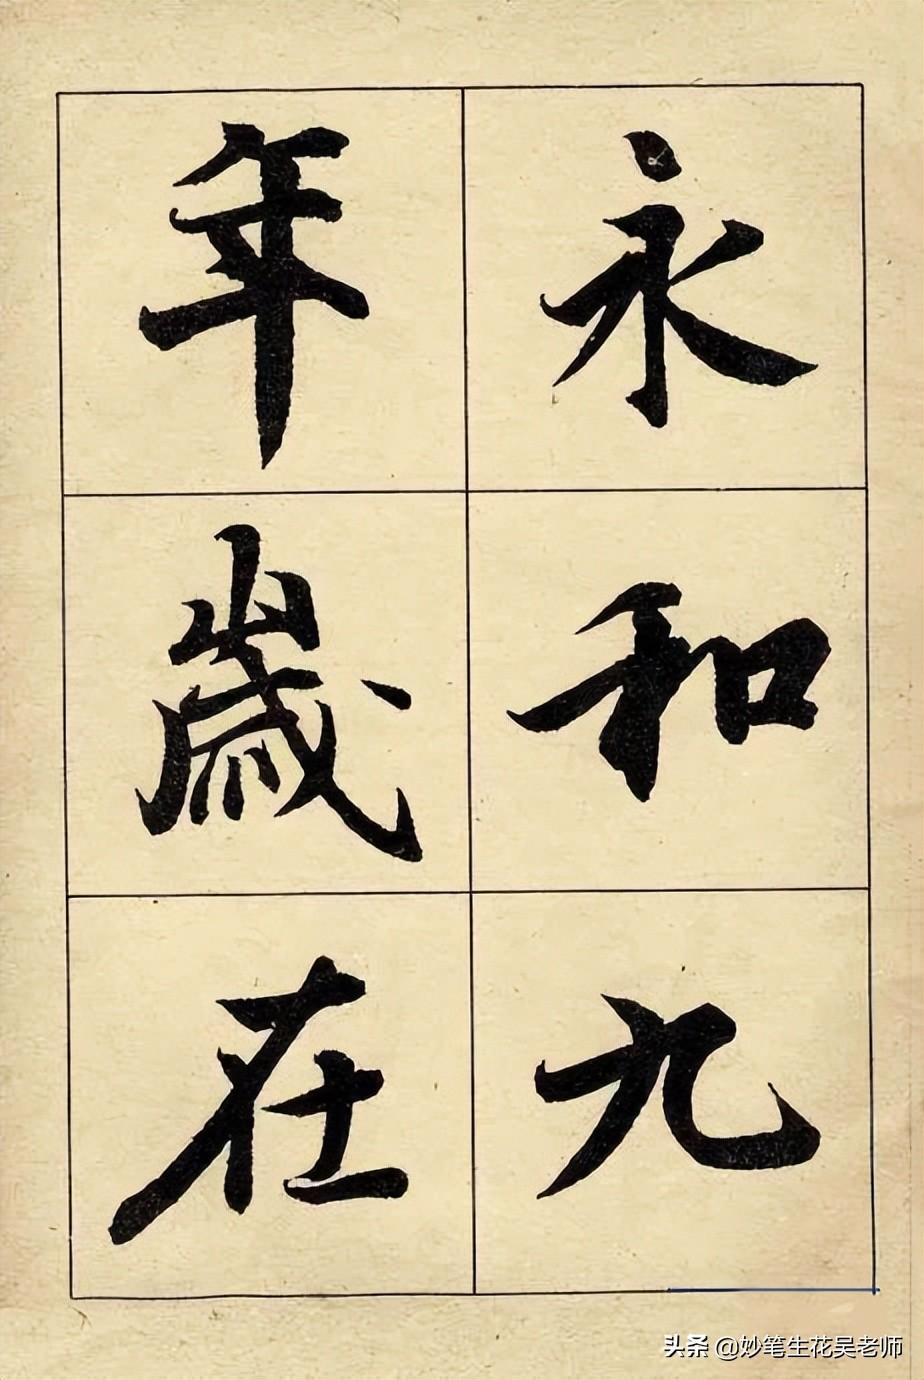 永和九
年歲在
头条 @妙笔生花吴老师